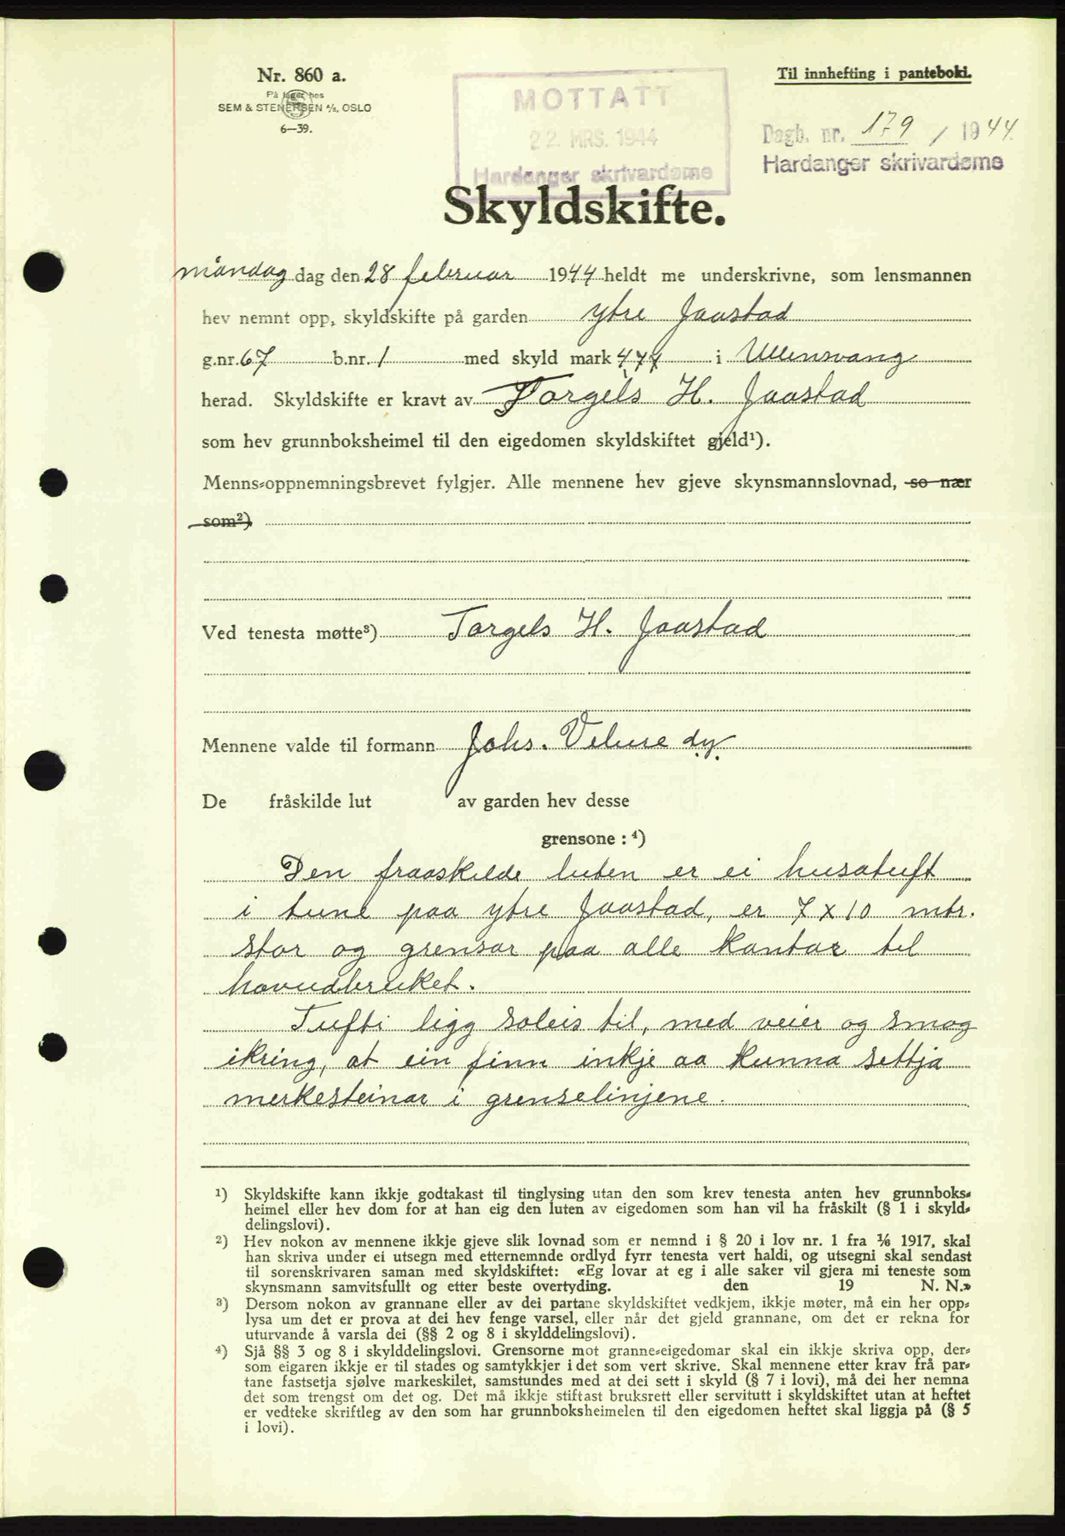 Nr. 860 a.
På lager hos
SEM & STENERSEN A/S, OSLO
6—39.
MOTTATT
22 MRS. 1944
Hardanger skrivardøme
Til innhefting i panteboki.
Dagb. nr. 179 / 1944
Hardanger skrivardøme
Skyldskifte.
måndag dag den 28 februar 1944 heldt me underskrivne, som lensmannen
hev nemnt opp, skyldskifte på garden ytre Jaastad
g.nr. 67 b.nr. 1 med skyld mark i Ullensvang
herad. Skyldskifte er kravt av Torgels H. Jaastad
som hev grunnboksheimel til den eigedomen skyldskiftet gjeld¹).
Menns-oppnemningsbrevet fylgjer. Alle mennene hev gjeve skynsmannslovnad, so nær
som²)
Ved tenesta møtte³) Torgels H. Jaastad
Mennene valde til formann Johs. Velure d.y.
De fråskilde lut av garden hev desse
grensone : ⁴)
Den fraaskilde luten er ei husatuft
i tune paa ytre Jaastad, er 7 x 10 mtr.
stor og grensar paa alle kantar til
hovudbruket.
Tufti ligg soleis til, med veier og smog
ikring, at ein finn inkje aa kunna settja
merkesteinar i grenselinjene.
¹) Skyldskifte kann ikkje godtakast til tinglysing utan den som krev tenesta anten hev grunnboks-
heimel eller hev dom for at han eig den luten av eigedomen som han vil ha fråskilt (§ 1 i skyld-
delingslovi).
²) Hev nokon av mennene ikkje gjeve slik lovnad som er nemnd i § 20 i lov nr. 1 fra 1/6 1917, skal
han skriva under ei utsegn med etternemnde ordlyd fyrr tenesta vert haldi, og utsegni skal sendast
til sorenskrivaren saman med skyldskiftet: «Eg lovar at eg i alle saker vil gjera mi teneste som
skynsmann samvitsfullt og etter beste overtyding. den 19 N. N.»
³) Dersom nokon av grannane eller av dei partane skyldskiftet vedkjem, ikkje møter, må ein her opp-
lysa um det er prova at dei hev fenge varsel, eller når det gjeld grannane, om det er rekna for
uturvande å varsla dei (§§ 2 og 8 i skylddelingslovi).
⁴) Sjå §§ 3 og 8 i skylddelingslovi. Grensorne mot granne-eigedomar skal ein ikkje skriva opp, der-
som eigaren ikkje er til stades og samtykkjer i det som vert skrive. Skal mennene etter krav frå par-
tane fastsetja sjølve markeskilet, samstundes med at dei sett i skyld (§ 7 i lovi), må dei her nemna
det som trengst om det og. Det må ikkje stiftast bruksrett eller servitutt i skyldskiftet utan at heftet
er vedteke skriftleg av den som har grunnboksheimelen til den eigedomen heftet skal liggja på (§ 5
i lovi).